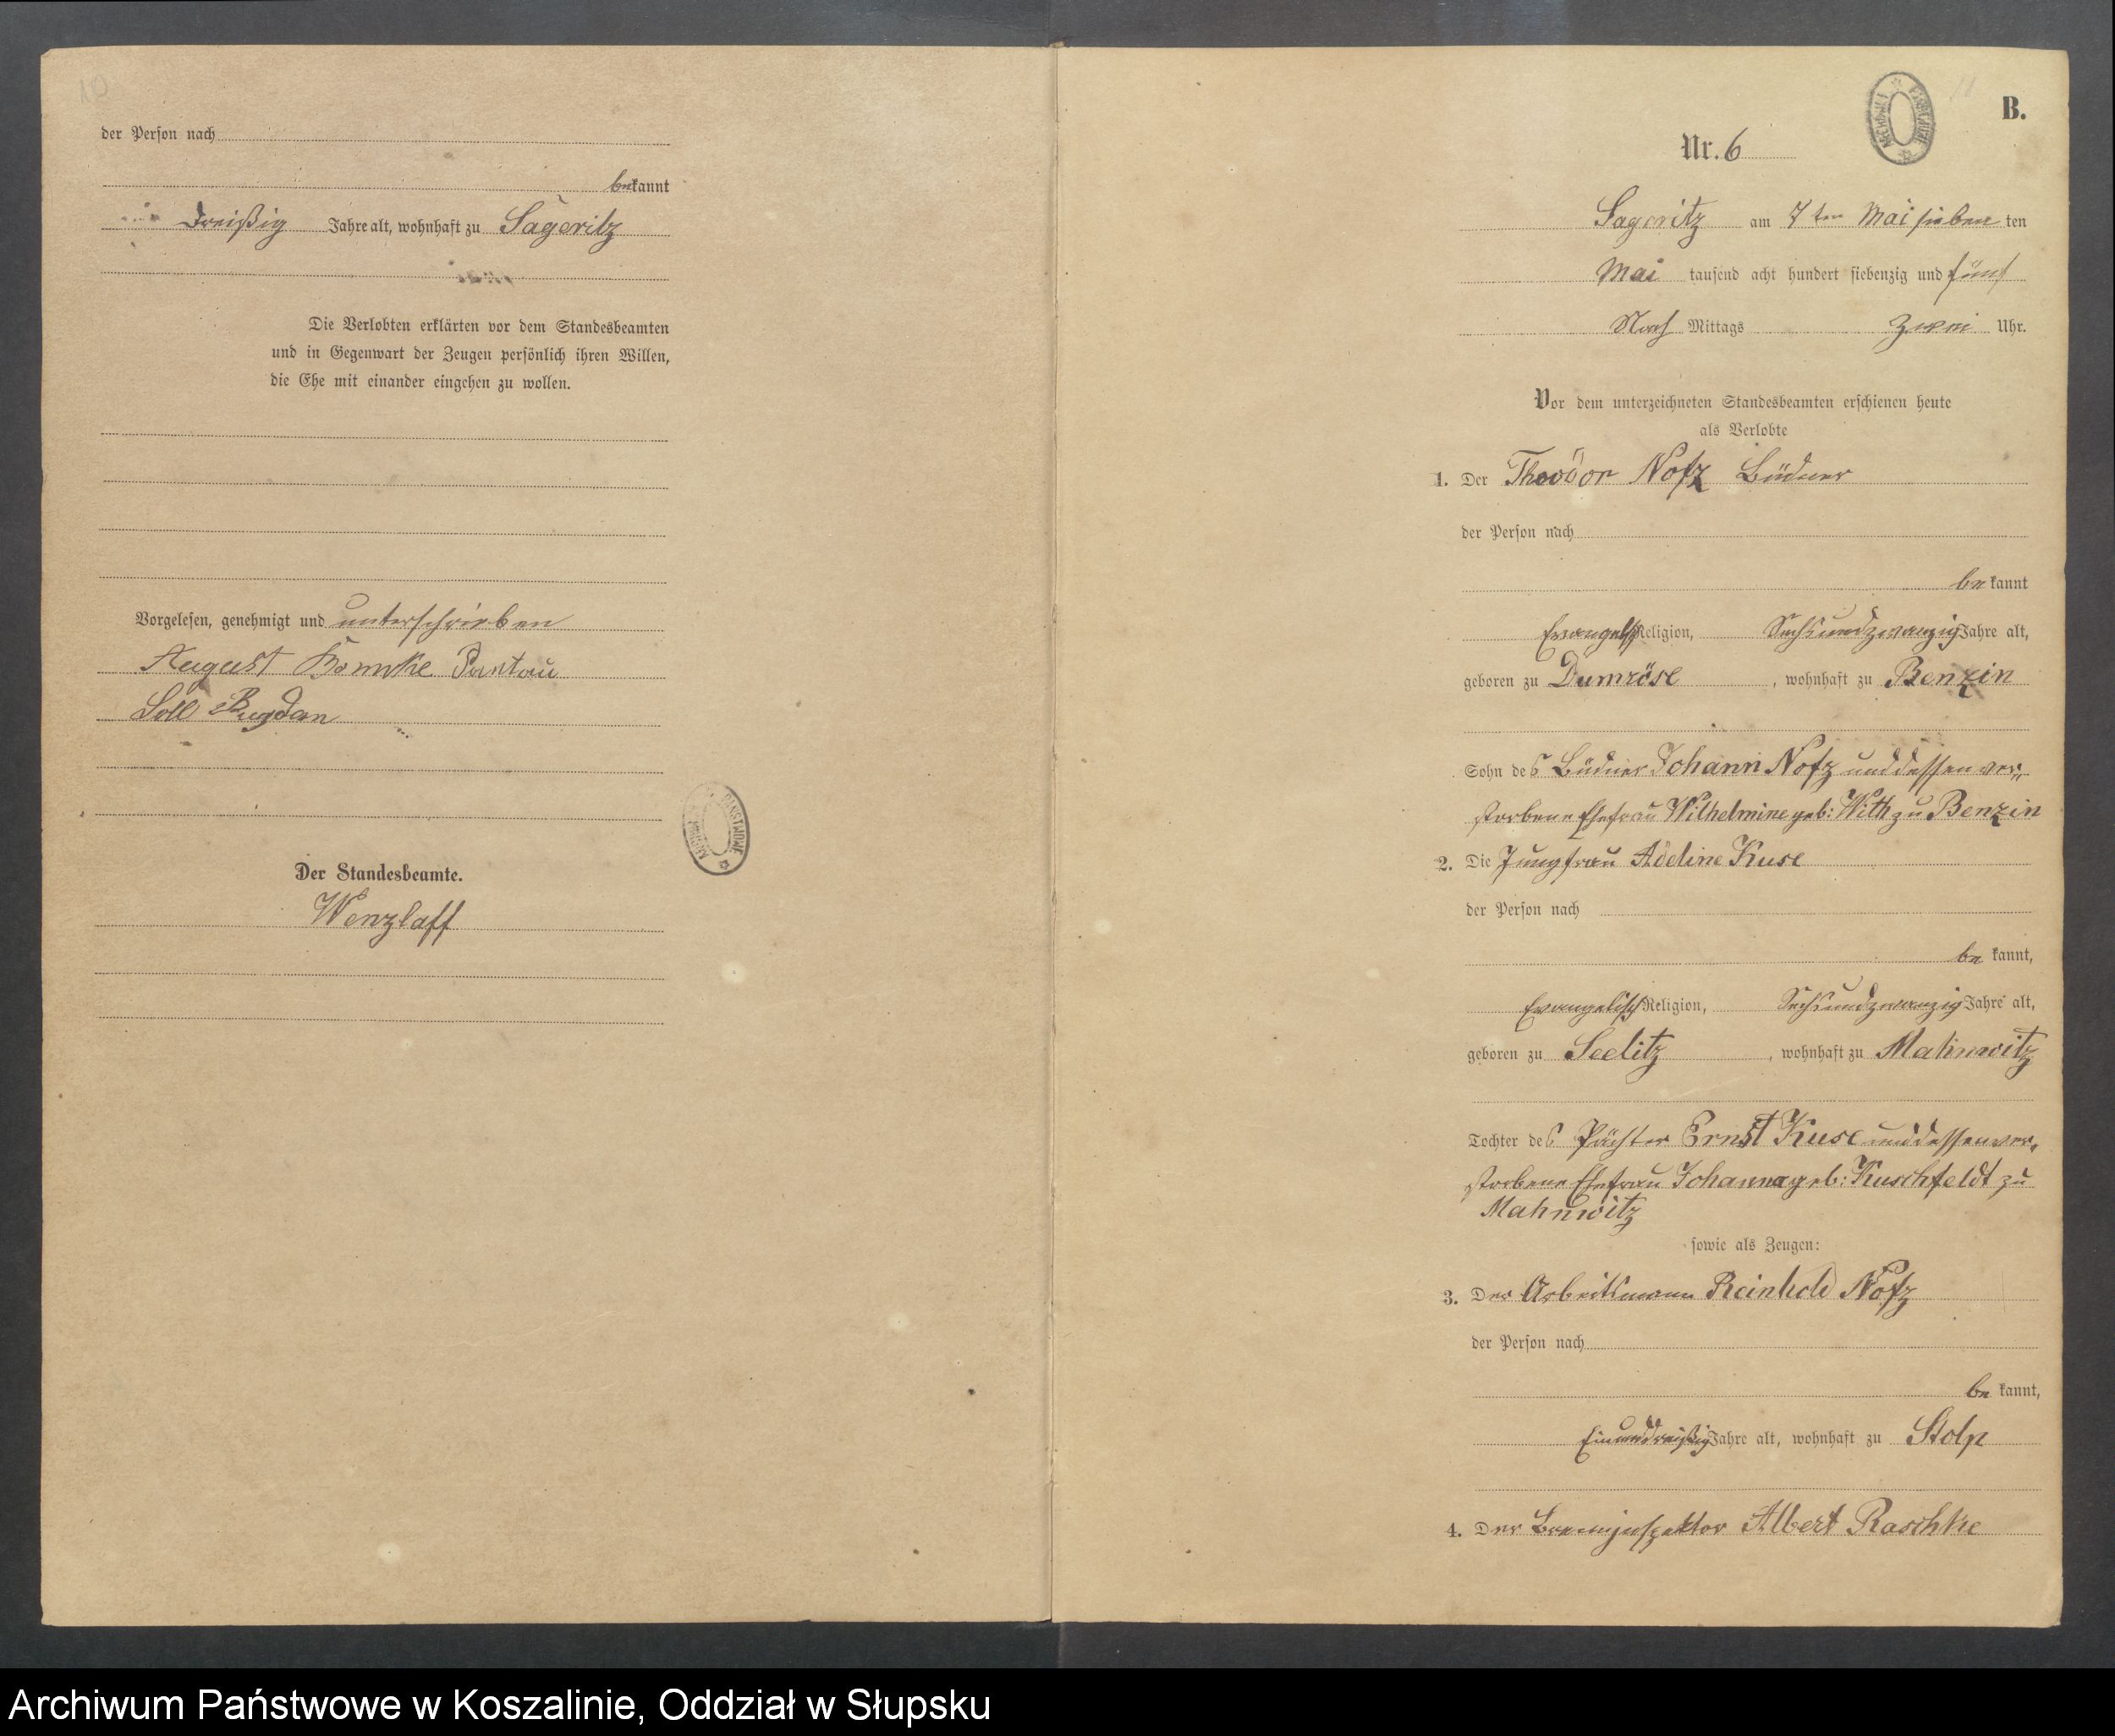 10
der Person nach
bekannt
Dreißig Jahre alt, wohnhaft zu Sageritz
Die Verlobten erklärten vor dem Standesbeamten
und in Gegenwart der Zeugen persönlich ihren Willen,
die Ehe mit einander eingehen zu wollen.
Vorgelesen, genehmigt und unterschrieben
August Pantau
Soll
Der Standesbeamte.
Wenzlaff
B.
Nr. 6
Sageritz am 7ten Mai sieben ten
Mai tausend acht hundert siebenzig und fünf
Nach Mittags Zwei Uhr.
Vor dem unterzeichneten Standesbeamten erschienen heute
als Verlobte
1. Der Theodor Notz Büdner
der Person nach
be kannt
Evangelsch Religion, Sechsundzwanzig Jahre alt,
geboren zu Dumröse, wohnhaft zu Benzin
Sohn des Büdner Johann Notz und dessen ver-
storbene Ehefrau Wilhelmine geb: With zu Benzin
2. Die Jungfrau Adeline Kuse
der Person nach
be kannt,
Evangelisch Religion, Sechsundzwanzig Jahre alt,
geboren zu Seelitz, wohnhaft zu Mahnwitz
Tochter des Pächter Ernst Kuse und dessen ver-
storbene Ehefrau Johanna geb: Kuschfeldt zu
Mahnwitz
sowie als Zeugen:
3. Der Arbeitsmann Reinhold Notz
der Person nach
be kannt,
Einunddreißig Jahre alt, wohnhaft zu Stolp
4. Der Albert Raschke
Archiwum Państwowe w Koszalinie, Oddział w Słupsku